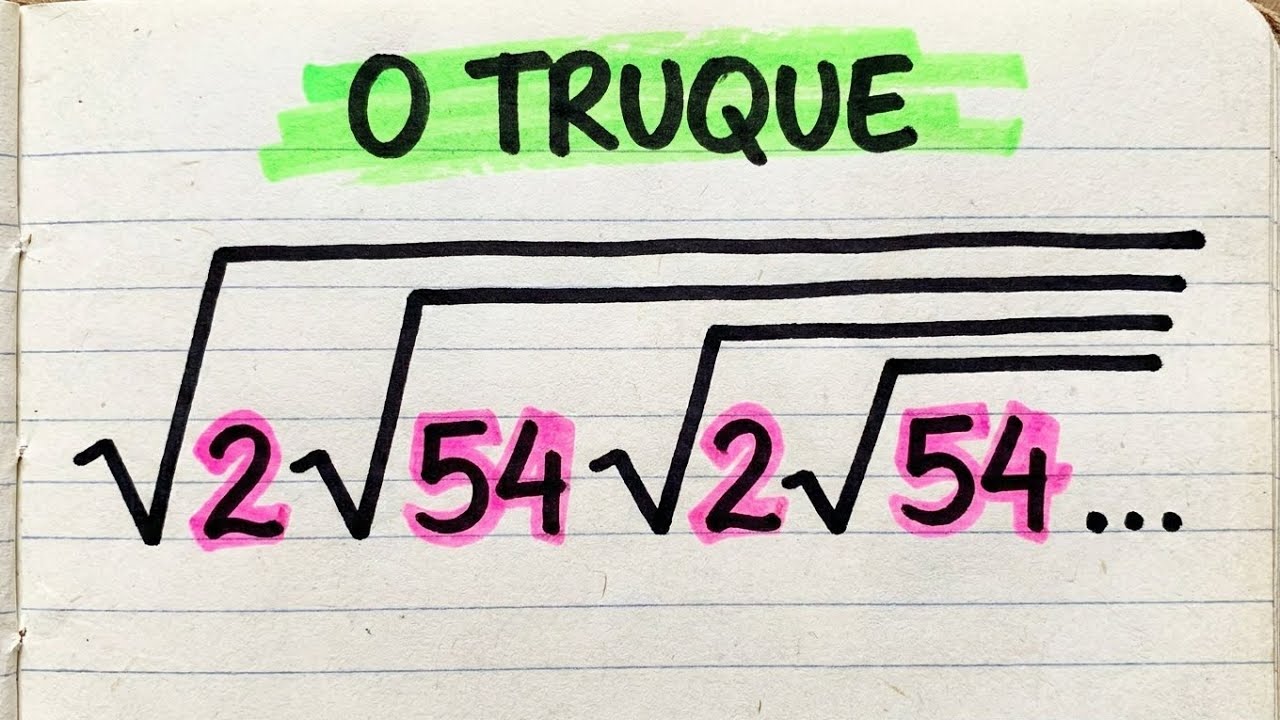 O TRUQUE
√2√54√2√54...